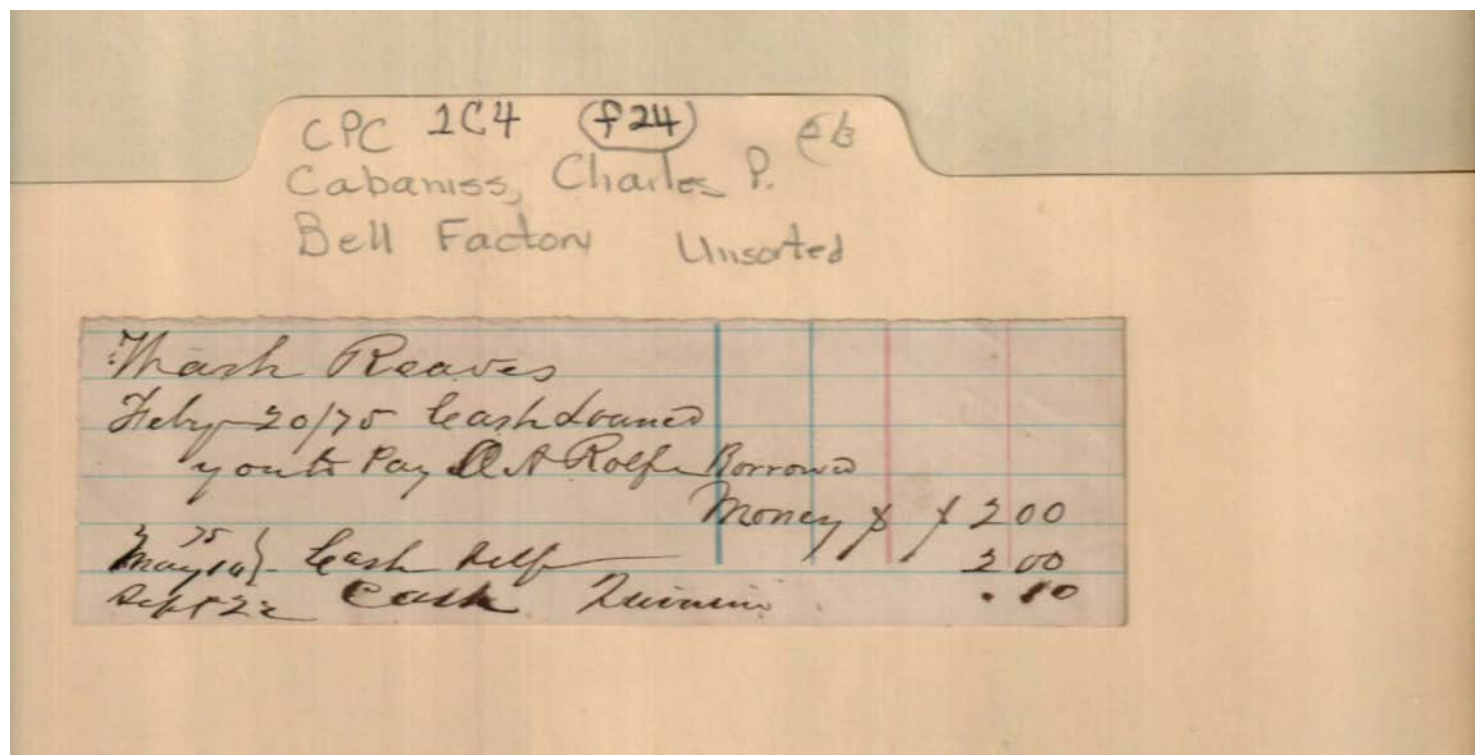 CPC 1C4 f24
Cabaniss, Charles P.
Bell Factory Unsorted
Reaves
Feby 20/75 Cash Loaned
you to Pay A Rolfe Borrowed
Money $ $ 2 00
75
May Cash Self 2 00
Sept 22 Cash Quinine .10